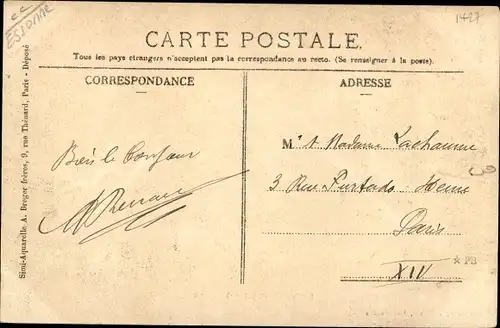 ESSONNE
1427
CARTE POSTALE.
Tous les pays étrangers n'acceptent pas la correspondance au recto. (Se renseigner à la poste).
CORRESPONDANCE
ADRESSE
Simi-Aquarelle A. Breger frères, 9, rue Thénard, Paris - Déposé
Bien le Bonjour
M r & Madame Lachaume
3 Rue Furtado Heine
Paris
XIV